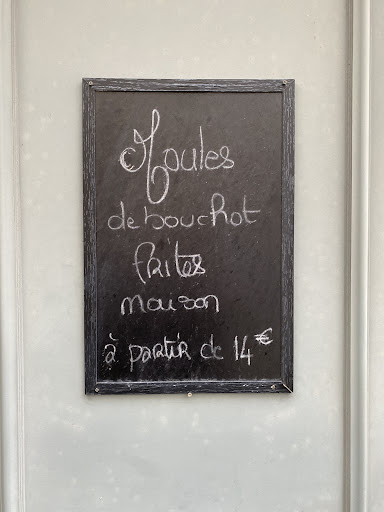 Moules
de bouchot
frites
maison
à partir de 14€